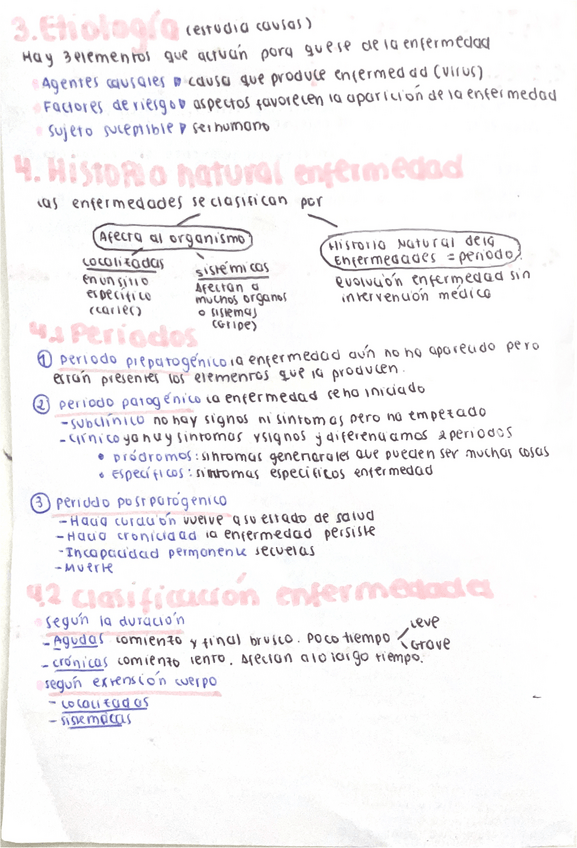 3. Etiología (estudia causas)
Hay 3 elementos que actúan para que se de la enfermedad
Agentes causales causa que produce enfermedad (virus)
Factores de riesgo aspectos favorecen la aparición de la enfermedad
Sujeto suceptible ser humano
4. Historia natural enfermedad
Las enfermedades se clasifican por
Afecta al organismo
Localizadas
en un sitio
específico
(caries)
Sistémicas
Afectan a
muchos organos
o sistemas
(Gripe)
Historia Natural de la
Enfermedades = periodo
evolución enfermedad sin
intervención médica
4.1 Períodos
1 periodo prepatogénico la enfermedad aún no ha aparecido pero
están presentes los elementos que la producen.
2 periodo patogénico la enfermedad se ha iniciado
- subclínico no hay signos ni sintomas pero ha empezado
- clínico ya hay sintomas y signos y diferenciamos 2 periodos
• pródromos: sintomas generales que pueden ser muchas cosas
• específicos: sintomas especificos enfermedad
3 periodo postpatogénico
- Hacia curación vuelve a su estado de salud
- Hacia cronicidad la enfermedad persiste
- Incapacidad permanente secuelas
- Muerte
4.2 Clasificación enfermedades
según la duración
- Agudas comiento y final brusco. Poco tiempo
Leve
Grave
- crónicas comiento lento. Afectan a lo largo tiempo.
según extensión cuerpo
- Localizadas
- sistemáticas